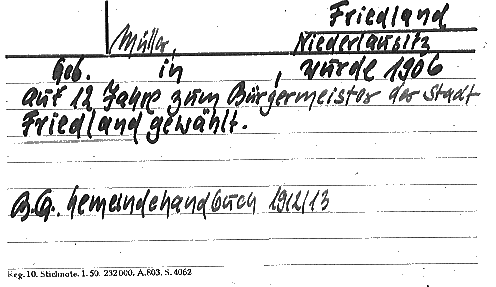 Friedland
Müller, Niederlausitz
Geb. in , wurde 1906
auf 12 Jahre zum Bürgermeister der Stadt
Friedland gewählt.
B.G. Gemeindehandbuch 1912/13
Reg. 10. Stichnote. 1. 50. 232000. A. 803. S. 4062